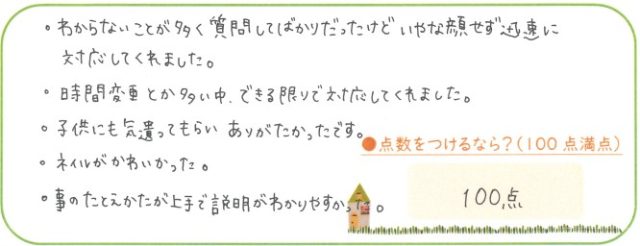 ・わからないことが多く質問してばかりだったけど いやな顔せず迅速に
対応してくれました。
・時間変更とか多い中、できる限りで対応してくれました。
・子供にも気遣ってもらい ありがたかったです。
●点数をつけるなら?(100点満点)
・ネイルがかわいかった。
100点
・事のたとえかたが上手で説明がわかりやすかった。